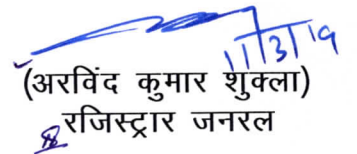 11/3/19
(अरविंद कुमार शुक्ला)
रजिस्ट्रार जनरल